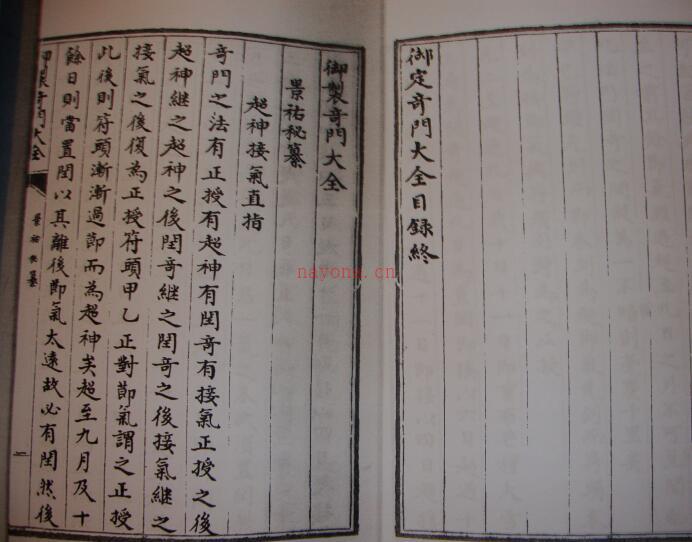 御定奇門大全目録終
御製奇門大全
景祐秘纂
超神接氣直指
奇門之法有正授有超神有閏奇有接氣正授之後
超神継之超神之後閏奇継之閏奇之後接氣継之
接氣之後復為正授符頭甲乙正對節氣謂之正授
此後則符頭漸漸過節而為超神矣超至九月及十
餘日則當置閏以其離後節氣太遠故必有閏然後
御製奇門大全
景祐
一
nayong.cn